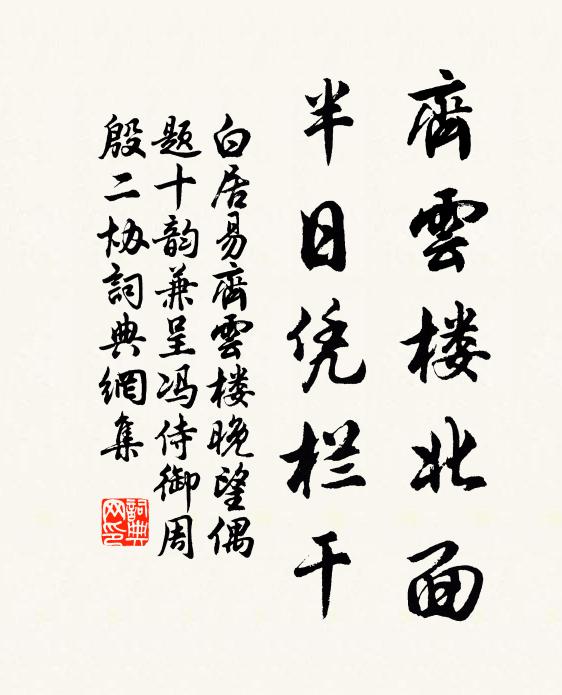 齊雲楼北面
半日凭栏干
白居易齊雲楼晚望偶
题十韵兼呈冯侍御周
殷二协詞典網集
詞典网印